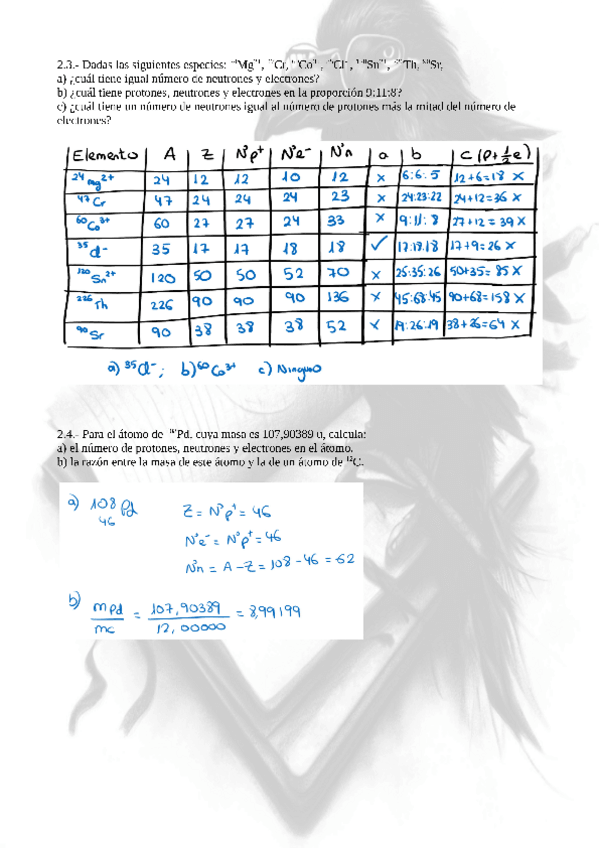 2.3.- Dadas las siguientes especies: ²⁴Mg²⁺, Cr, Co³⁺, ³⁵Cl⁻, ¹²⁰Sn²⁺, Th, ⁹⁰Sr,
a) ¿cuál tiene igual número de neutrones y electrones?
b) ¿cuál tiene protones, neutrones y electrones en la proporción 9:11:8?
c) ¿cuál tiene un número de neutrones igual al número de protones más la mitad del número de
electrones?
Elemento A Z Nºp⁺ Nºe⁻ Nºn a b c (p+½e)
²⁴Mg²⁺ 24 12 12 10 12 x 6:6:5 12+6=18 x
⁴⁷Cr 47 24 24 24 23 x 24:23:22 24+12=36 x
⁶⁰Co³⁺ 60 27 27 24 33 x 9:11:8 27+12=39 x
³⁵Cl⁻ 35 17 17 18 18 ✓ 17:18:18 17+9=26 x
¹²⁰Sn²⁺ 120 50 50 52 70 x 25:35:26 50+35=85 x
²²⁶Th 226 90 90 90 136 x 45:68:45 90+68=158 x
⁹⁰Sr 90 38 38 38 52 x 19:26:19 38+26=64 x
a) ³⁵Cl⁻; b) ⁶⁰Co³⁺ c) Ninguno
2.4.- Para el átomo de ¹⁰⁸Pd, cuya masa es 107,90389 u, calcula:
a) el número de protones, neutrones y electrones en el átomo.
b) la razón entre la masa de este átomo y la de un átomo de ¹²C.
a) 108 Pd Z = Nºp⁺ = 46
46
Nºe⁻ = Nºp⁺ = 46
Nºn = A - Z = 108 - 46 = 62
b) mpd / mc = 107,90389 / 12,00000 = 8,99199